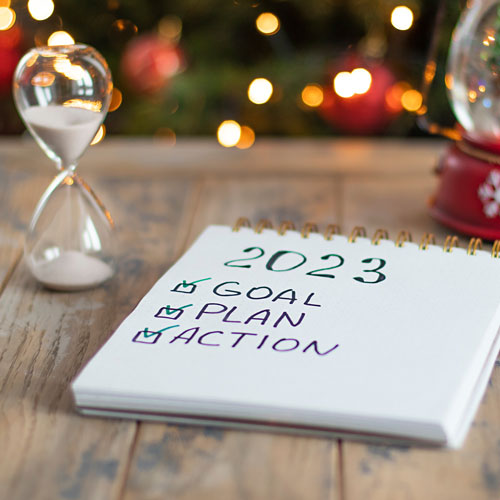 2023
GOAL
PLAN
ACTION